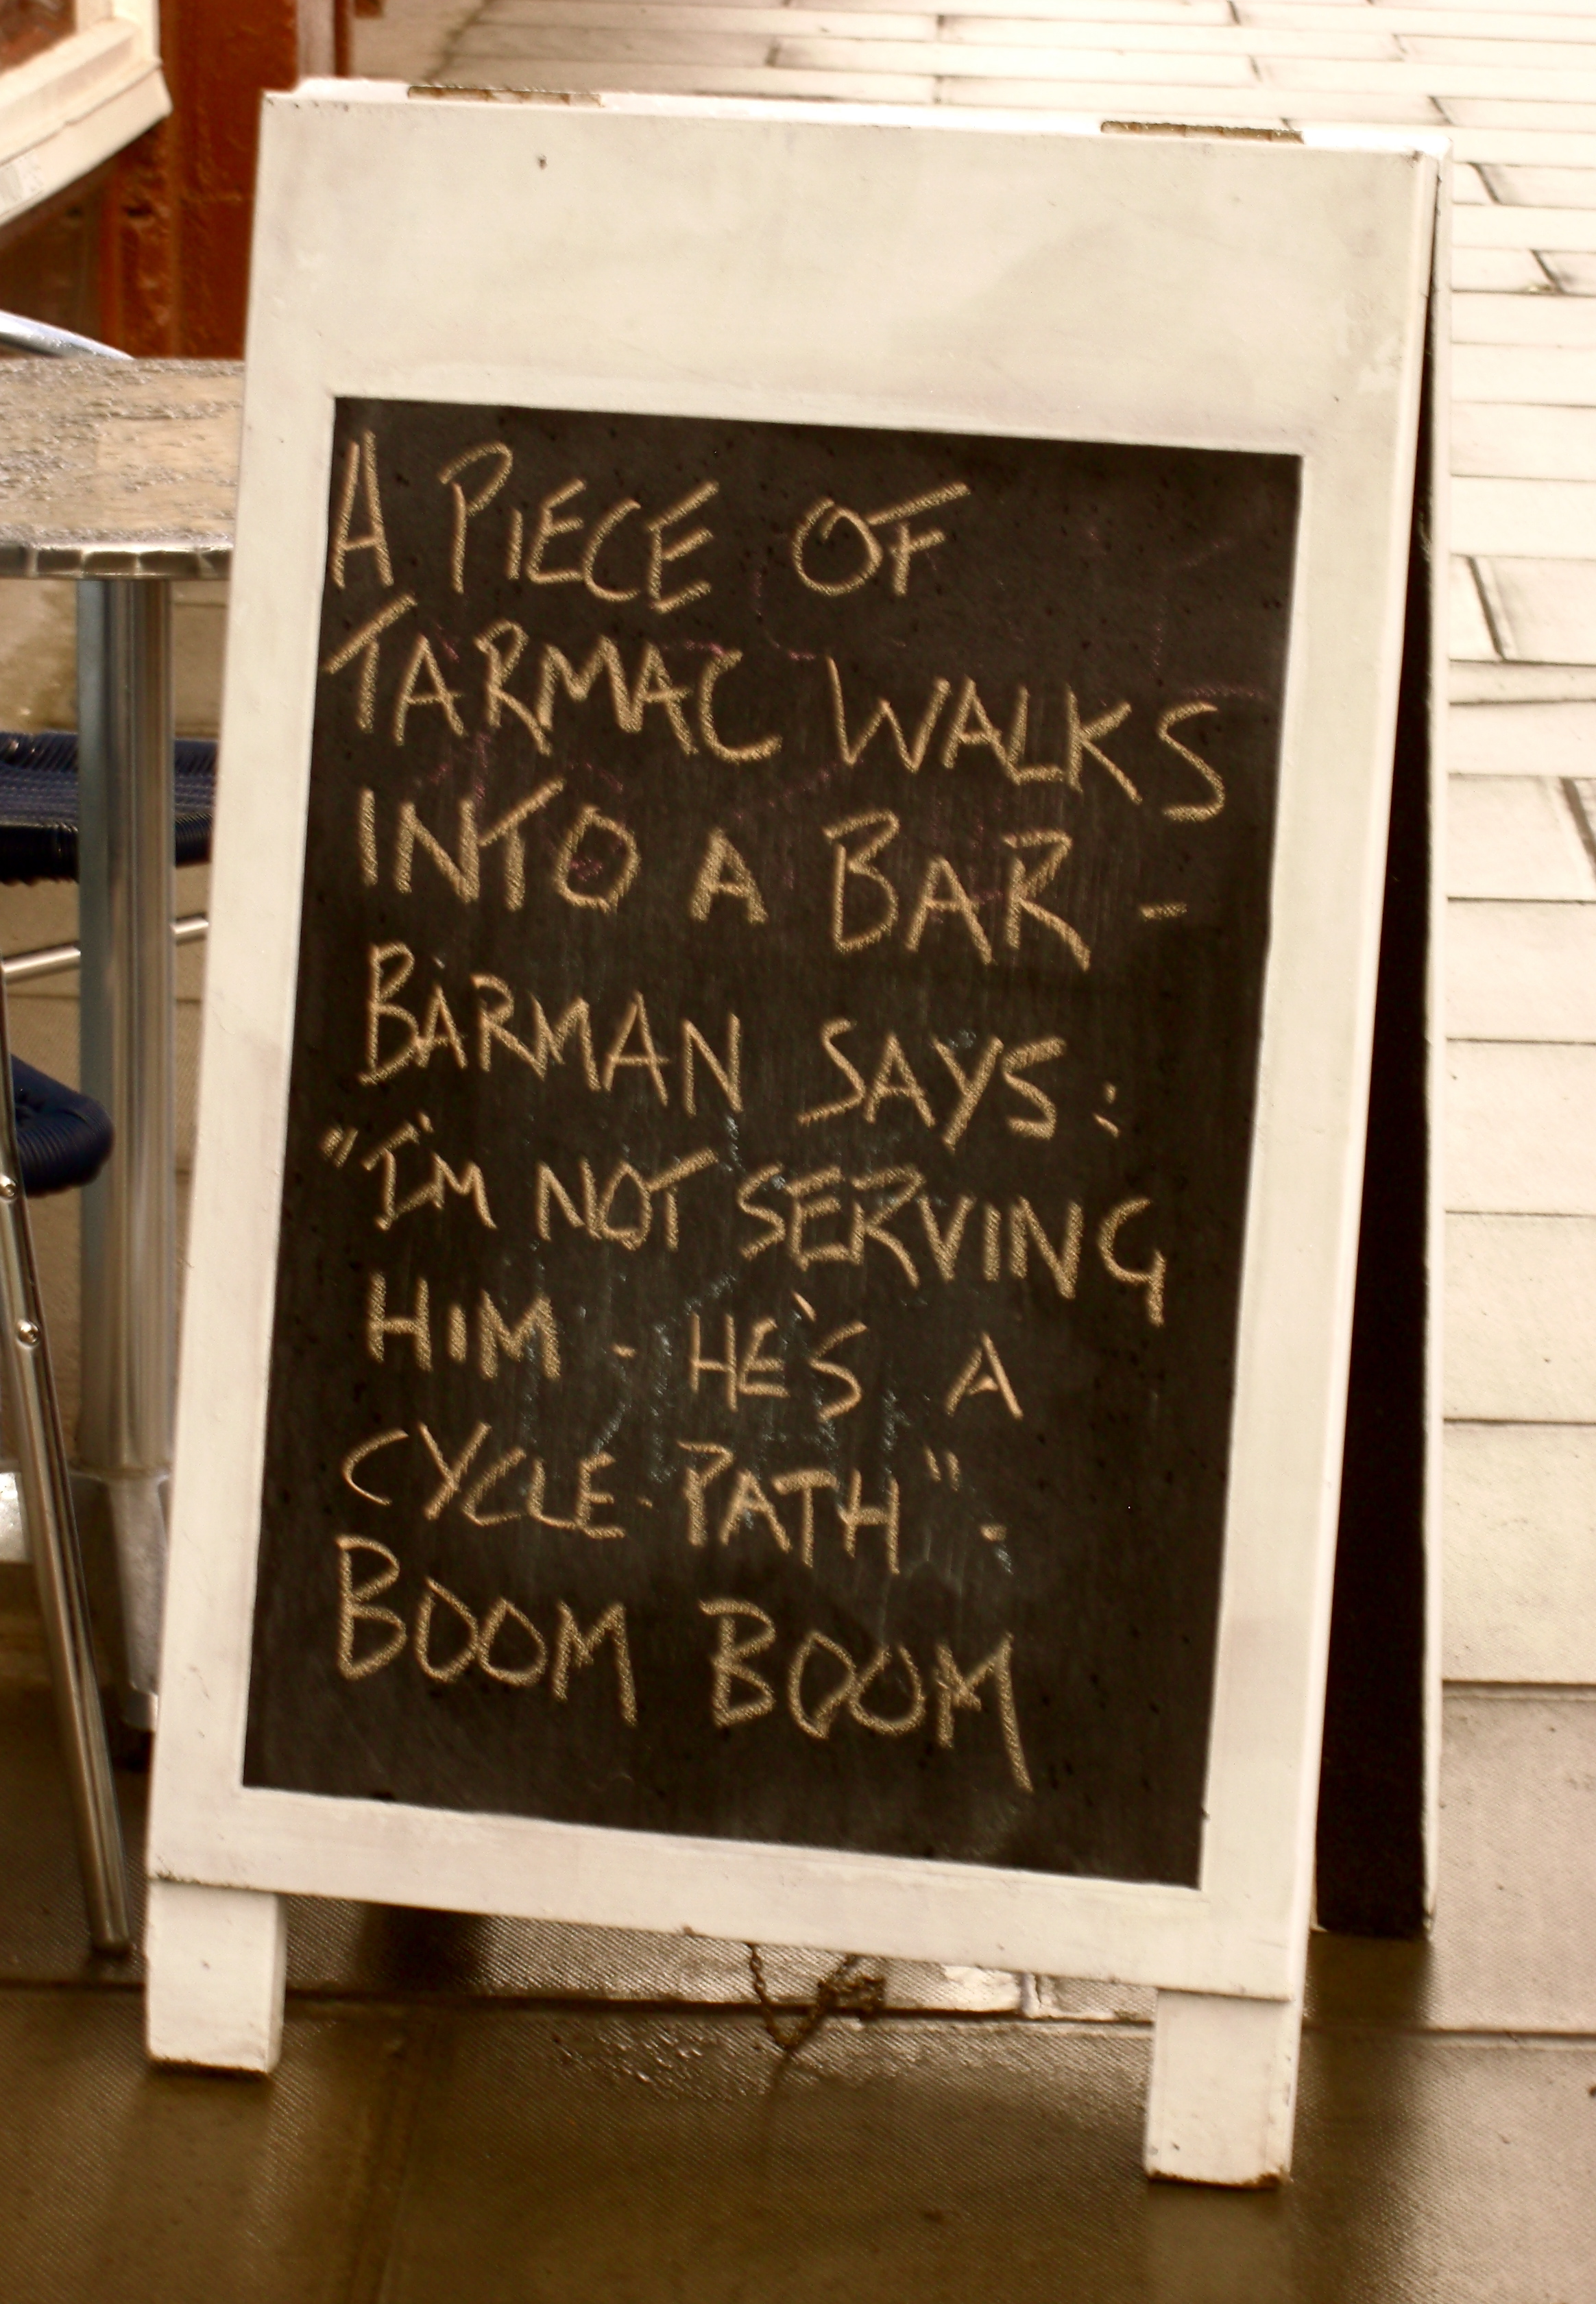 A PIECE OF
TARMAC WALKS
INTO A BAR -
BARMAN SAYS:
"I'M NOT SERVING
HIM - HE'S A
CYCLE-PATH" -
BOOM BOOM